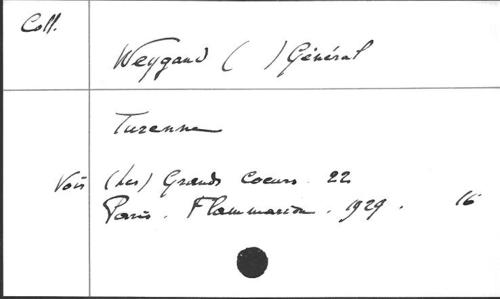 Coll.
Weygand ( ) Général
Turenne
Voir (Les) Grands Coeurs. 22
Paris. Flammarion. 1929. 16